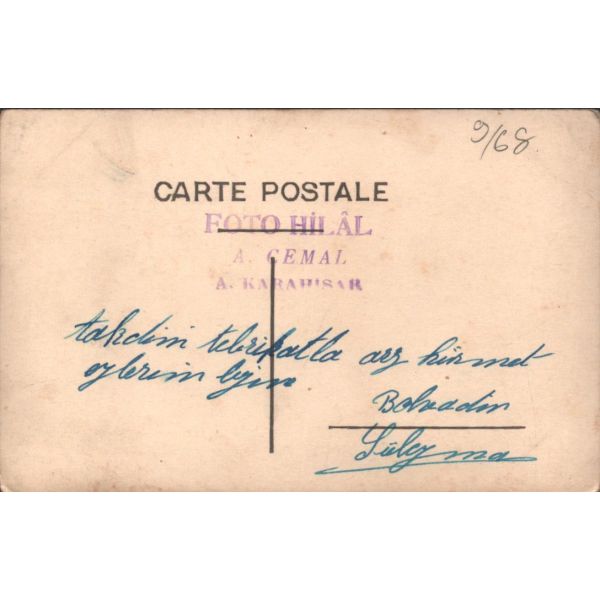 9/68.
CARTE POSTALE
FOTO HİLÂL
A. CEMAL
A. KARAHISAR
takdim tebrikatla arz hürmet
eylerim
Bolvadin
Süleyma